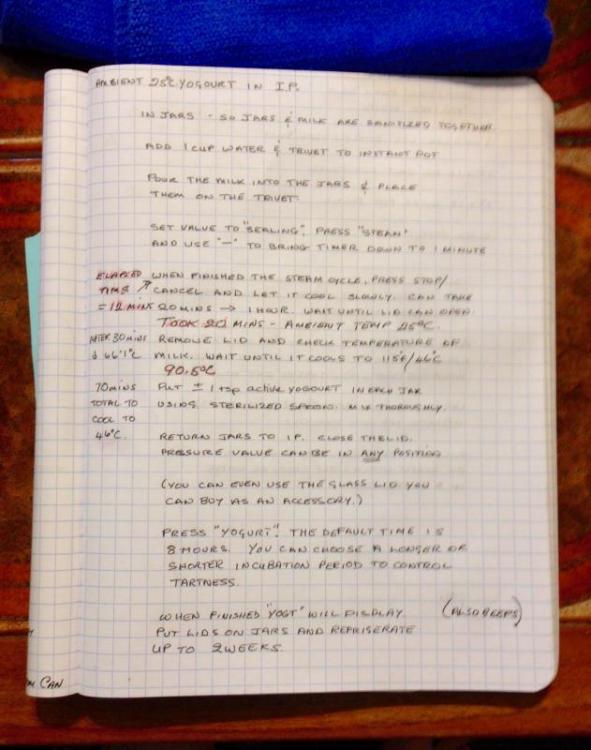 AMBIENT 25°C YOGOURT IN I.P.
IN JARS - SO JARS & MILK ARE SANITIZED TOGETHER.
ADD 1 CUP WATER & TRIVET TO INSTANT POT
POUR THE MILK INTO THE JARS & PLACE
THEM ON THE TRIVET.
SET VALUE TO "SEALING". PRESS "STEAM"
AND USE "-" TO BRING TIMER DOWN TO 1 MINUTE
ELAPSED WHEN FINISHED THE STEAM CYCLE, PRESS STOP/
TIME CANCEL AND LET IT COOL SLOWLY. CAN TAKE
= 12 MINS 20 MINS → 1 HOUR. WAIT UNTIL LID CAN OPEN.
TOOK 20 MINS - AMBIENT TEMP 25°C.
AFTER 30 MINS REMOVE LID AND CHECK TEMPERATURE OF
↓ 66.1°C MILK. WAIT UNTIL IT COOLS TO 115F/46°C
90.5°C
70 MINS PUT ± 1 tsp active YOGOURT IN EACH JAR
TOTAL TO USING STERILIZED SPOON. MIX THOROUGHLY.
COOL TO
46°C. RETURN JARS TO I.P. CLOSE THE LID.
PRESSURE VALUE CAN BE IN ANY POSITION
(YOU CAN EVEN USE THE GLASS LID YOU
CAN BUY AS AN ACCESSORY.)
PRESS "YOGURT". THE DEFAULT TIME IS
8 HOURS. YOU CAN CHOOSE A LONGER OR
SHORTER INCUBATION PERIOD TO CONTROL
TARTNESS.
WHEN FINISHED "YOGT" WILL DISPLAY. (ALSO BEEPS)
PUT LIDS ON JARS AND REFRIGERATE
UP TO 2 WEEKS.
CAN